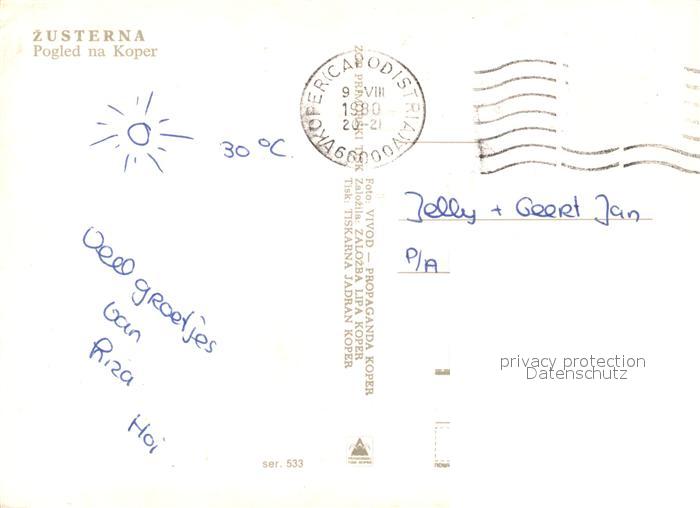 ŽUSTERNA
Pogled na Koper
30 °C.
Veel groetjes
van
Riza
Hoi
ser. 533
KOPER(CAPODISTRIA)
9. VIII
1980
20-21
66000
Foto: VIVOD — PROPAGANDA KOPER
Založila: ZALOŽBA LIPA KOPER
Tisk: TISKARNA JADRAN KOPER
Jelly + Geert Jan
P/A
privacy protection
Datenschutz